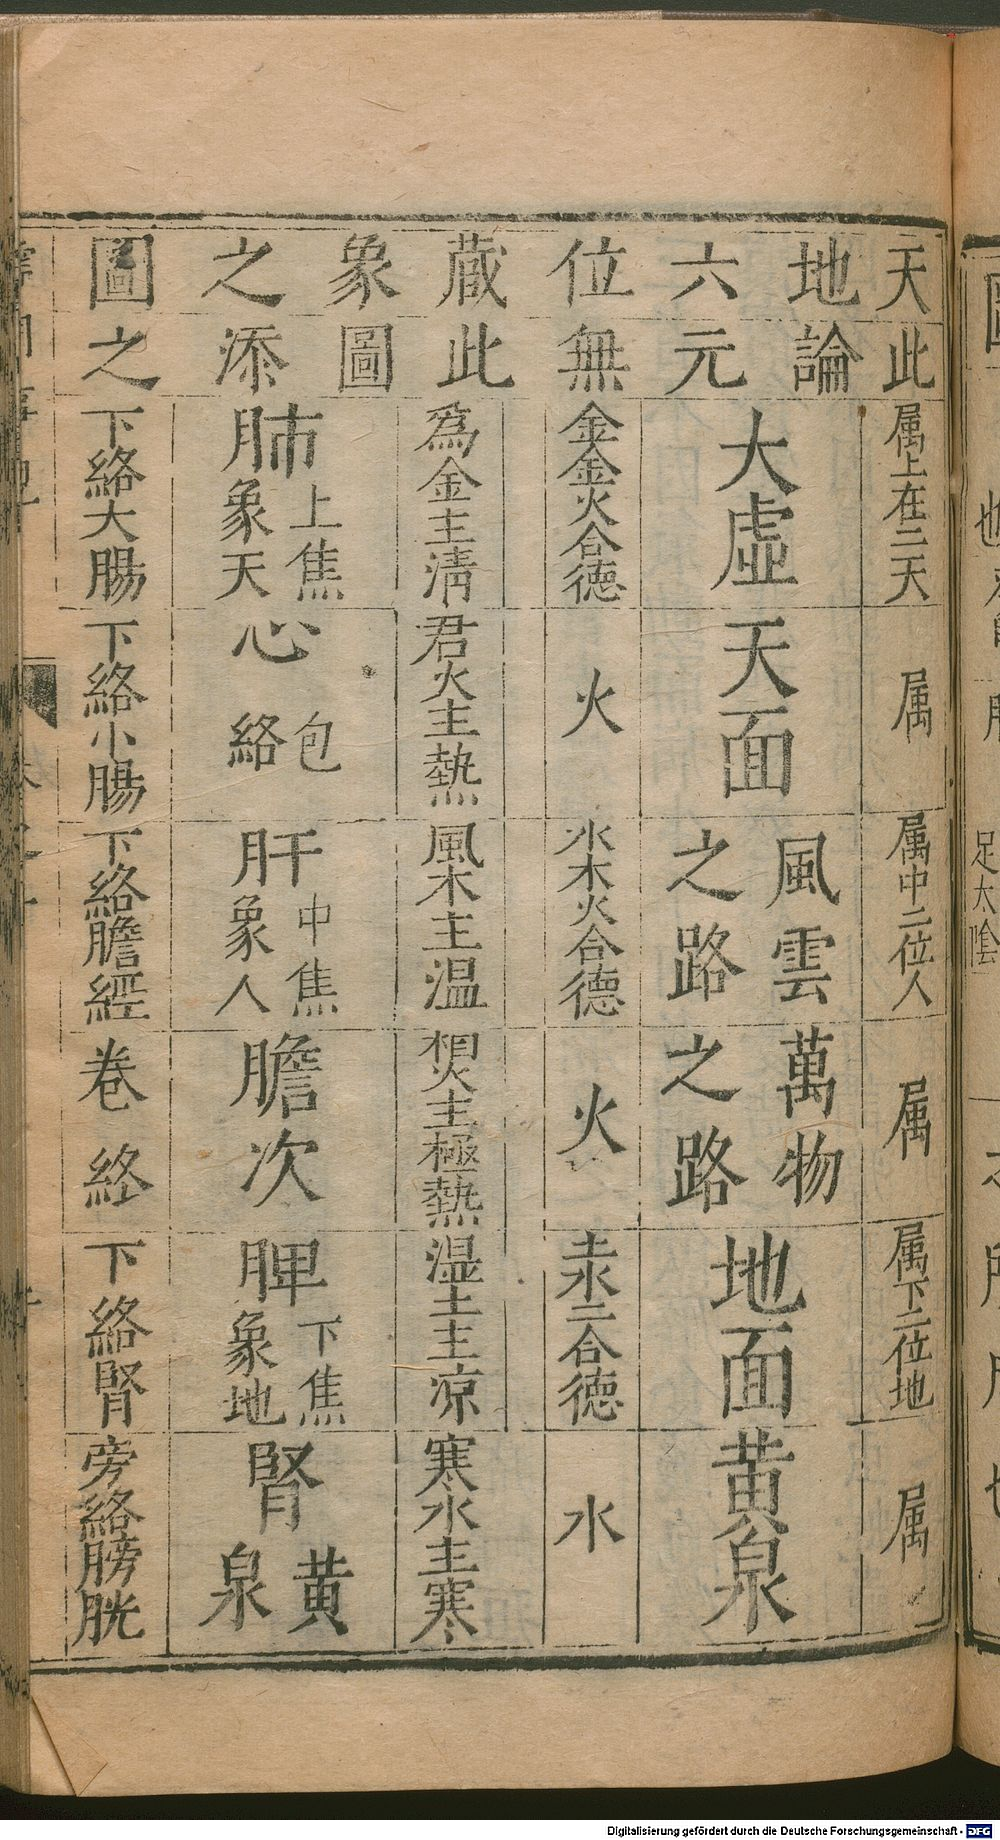 天地六位藏象之圖
此論元無此圖添之
属上在二天 属 属中二位人 属 属下二位地 属
大虛 天面 風雲之路 萬物之路 地面 黄泉
金金火合德 火 水木火合德 火 土水二合德 水
爲金主清 君火主熱 風木主温 相火主極熱 湿土主凉 寒水主寒
肺上焦象天 心包絡 肝中焦象人 膽次 脾下焦象地 腎黄泉
下絡大腸 下絡小腸 下絡膽經 巻終 下絡腎 旁絡膀胱
足太陰
Digitalisierung gefördert durch die Deutsche Forschungsgemeinschaft - DFG